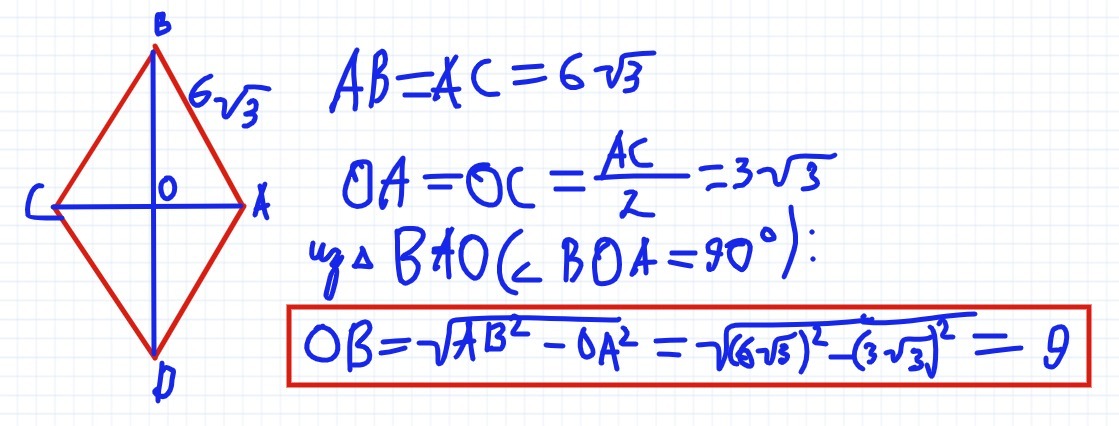 B
6√3
C
O
A
D
AB=AC=6√3
OA=OC=AC/2=3√3
из △ BAO(∠ BOA=90°):
OB=√(AB²-OA²)=√((6√3)²-(3√3)²)=9